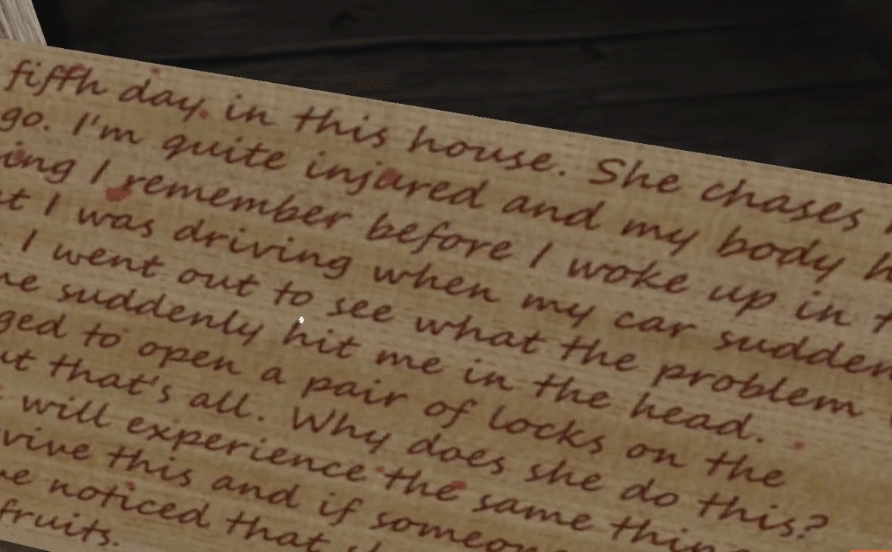 fifth day in this house. She chases
go. I'm quite injured and my body
I remember before I woke up in
I was driving when my car
I went out to see what the problem
suddenly hit me in the head.
to open a pair of locks on the
that's all. Why does she do this?
will experience the same
this and if
noticed that
fruits.